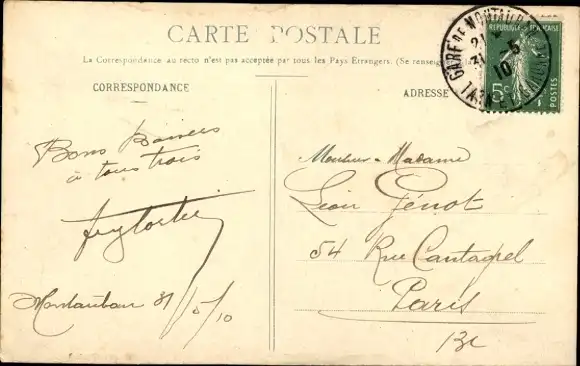 CARTE POSTALE
La Correspondance au recto n'est pas acceptée par tous les Pays Etrangers. (Se renseign
CORRESPONDANCE
ADRESSE
GARE DE MONTAUBAN
31 -5
10
TARN
REPUBLIQUE FRANÇAISE
5c
POSTES
Bons Baisers
à tous trois
Montauban 31/5/10
Monsieur - Madame
Léon Génot
54 Rue Cantagrel
Paris
13e